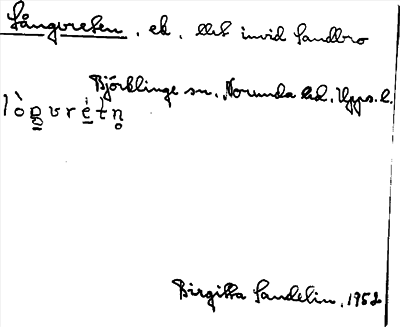 Långvreten. ek. litet invid Sandbro
Björklinge sn. Norunda hd. Upps. l.
Birgitta Sandelin, 1952